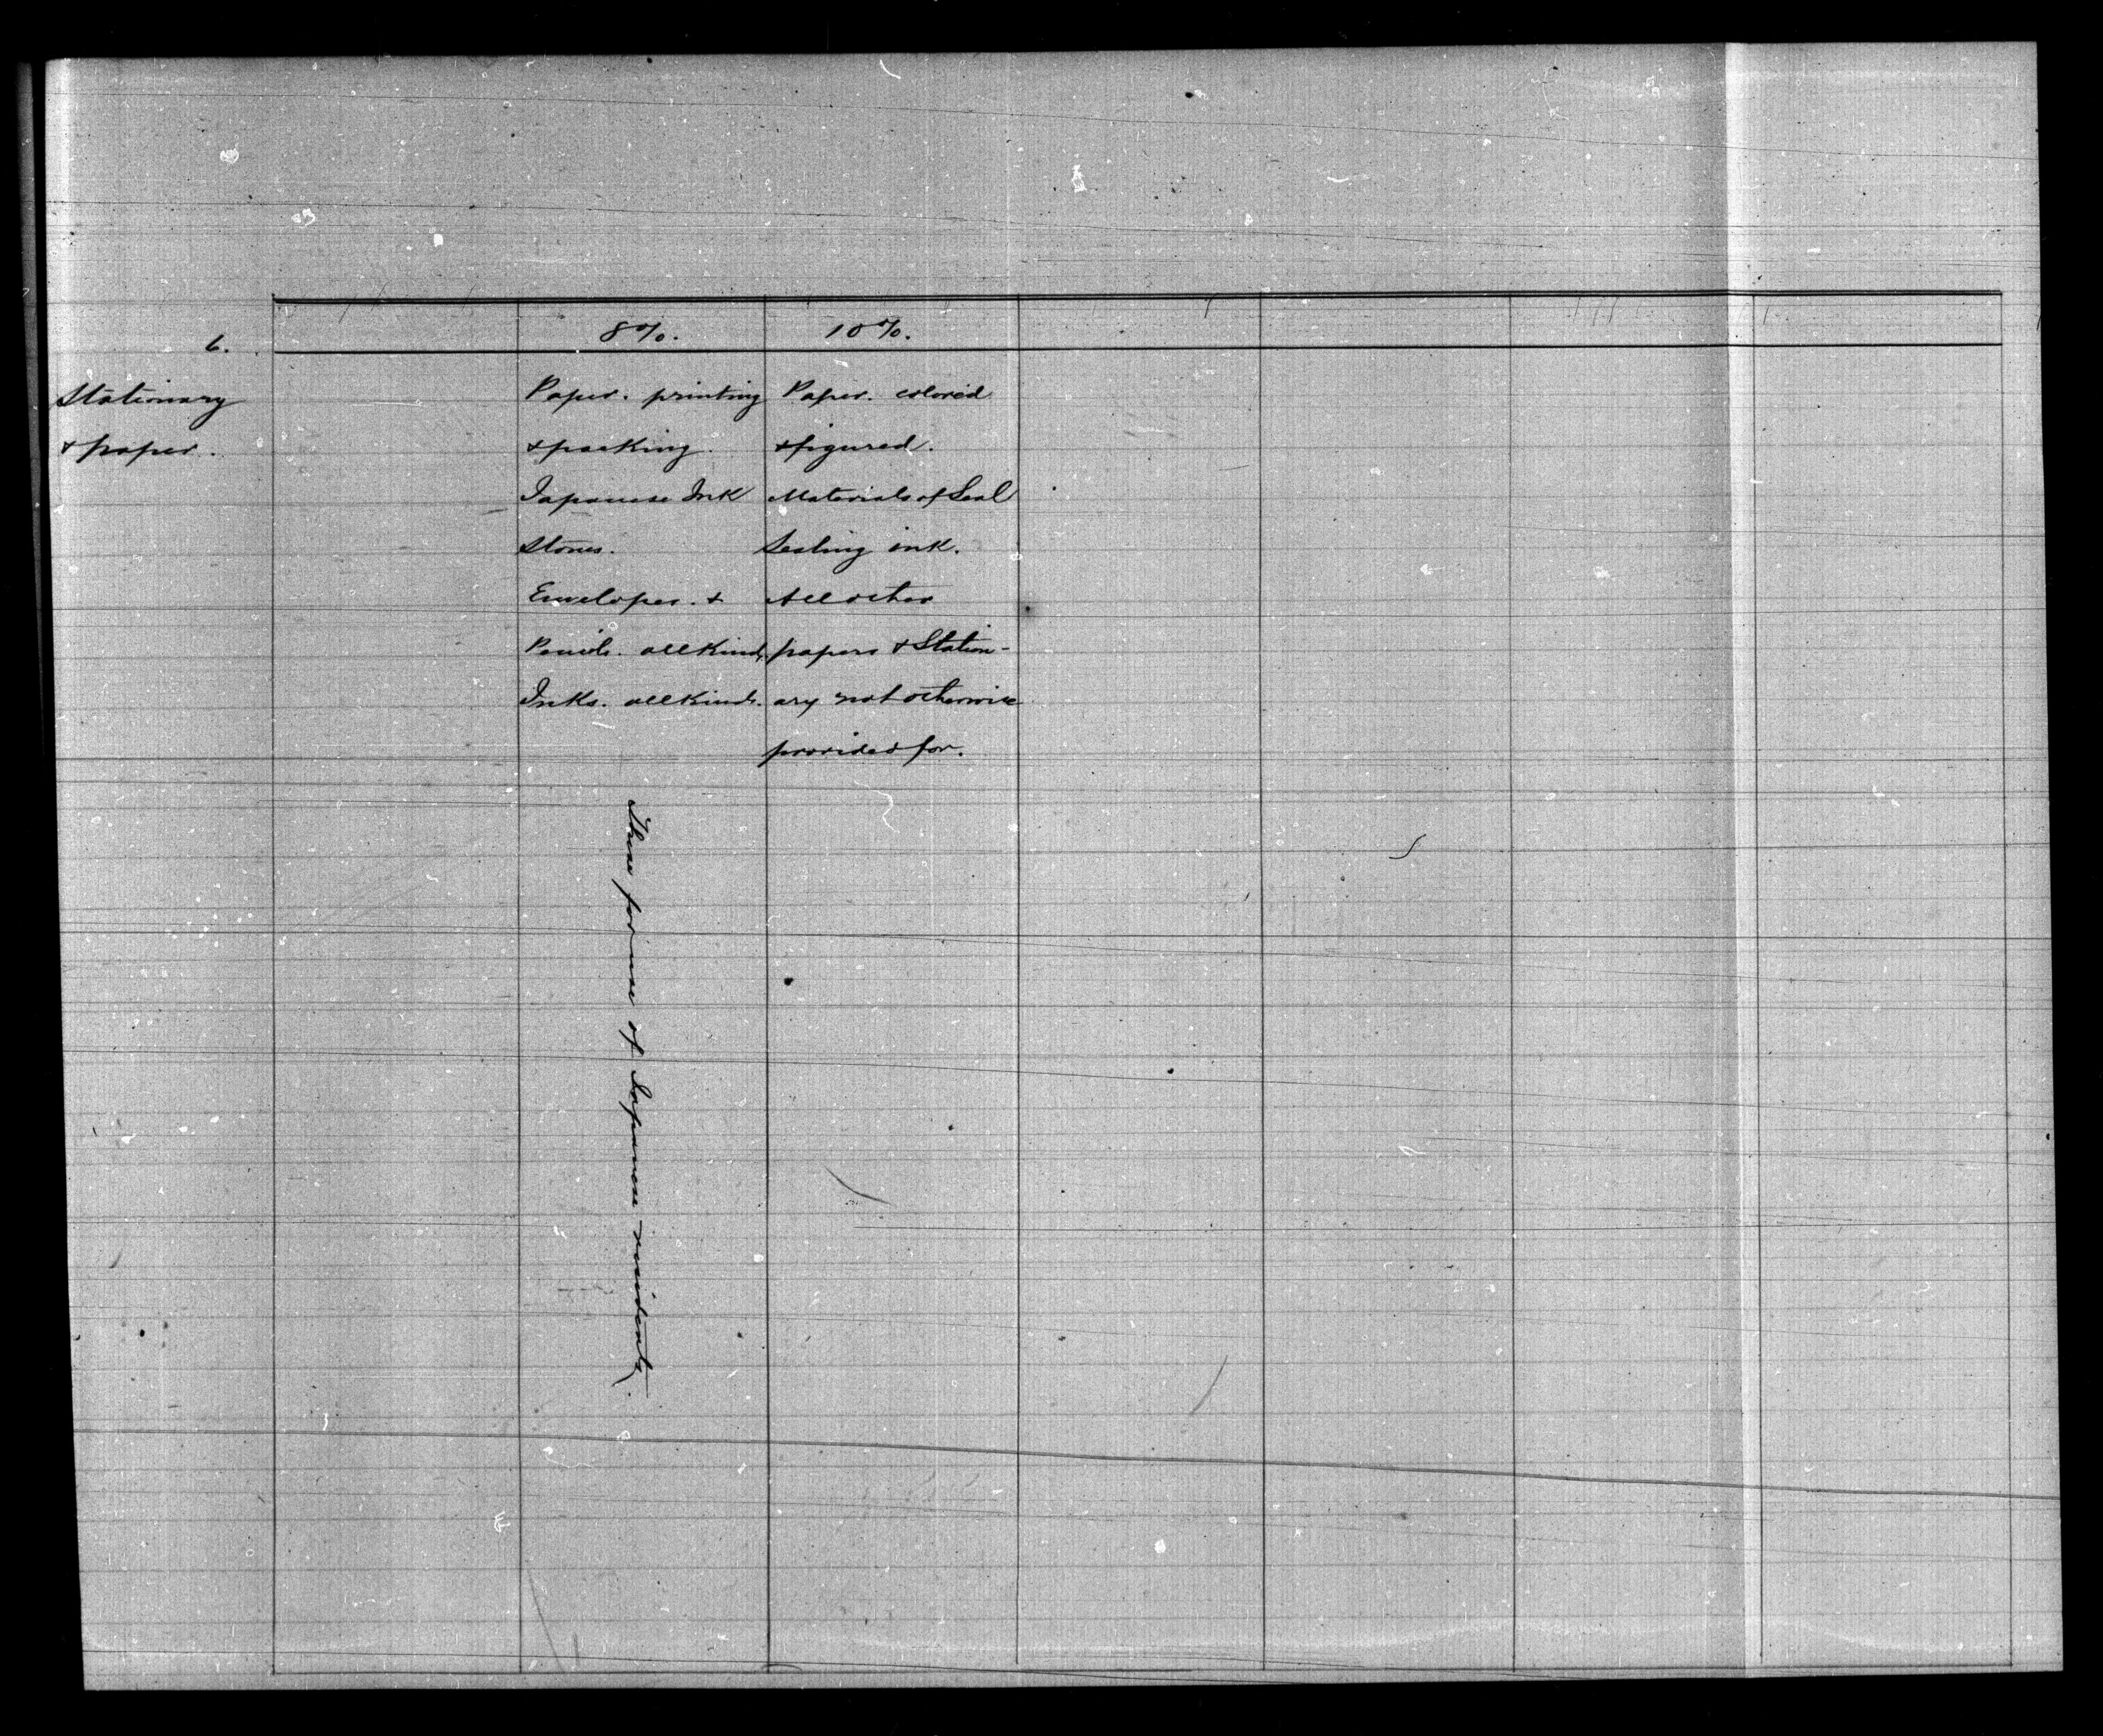 6.
Stationary
& paper.
8%.
Paper. printing
& packing.
Japanese Ink
Stones.
Envelopes. &
Pencils. all kinds.
Inks. all kinds.
These for use of Japanese residents.
10%.
Paper. colored
& figured.
Materials of Seal
Sealing ink.
All other
papers & Station-
ary not otherwise
provided for.